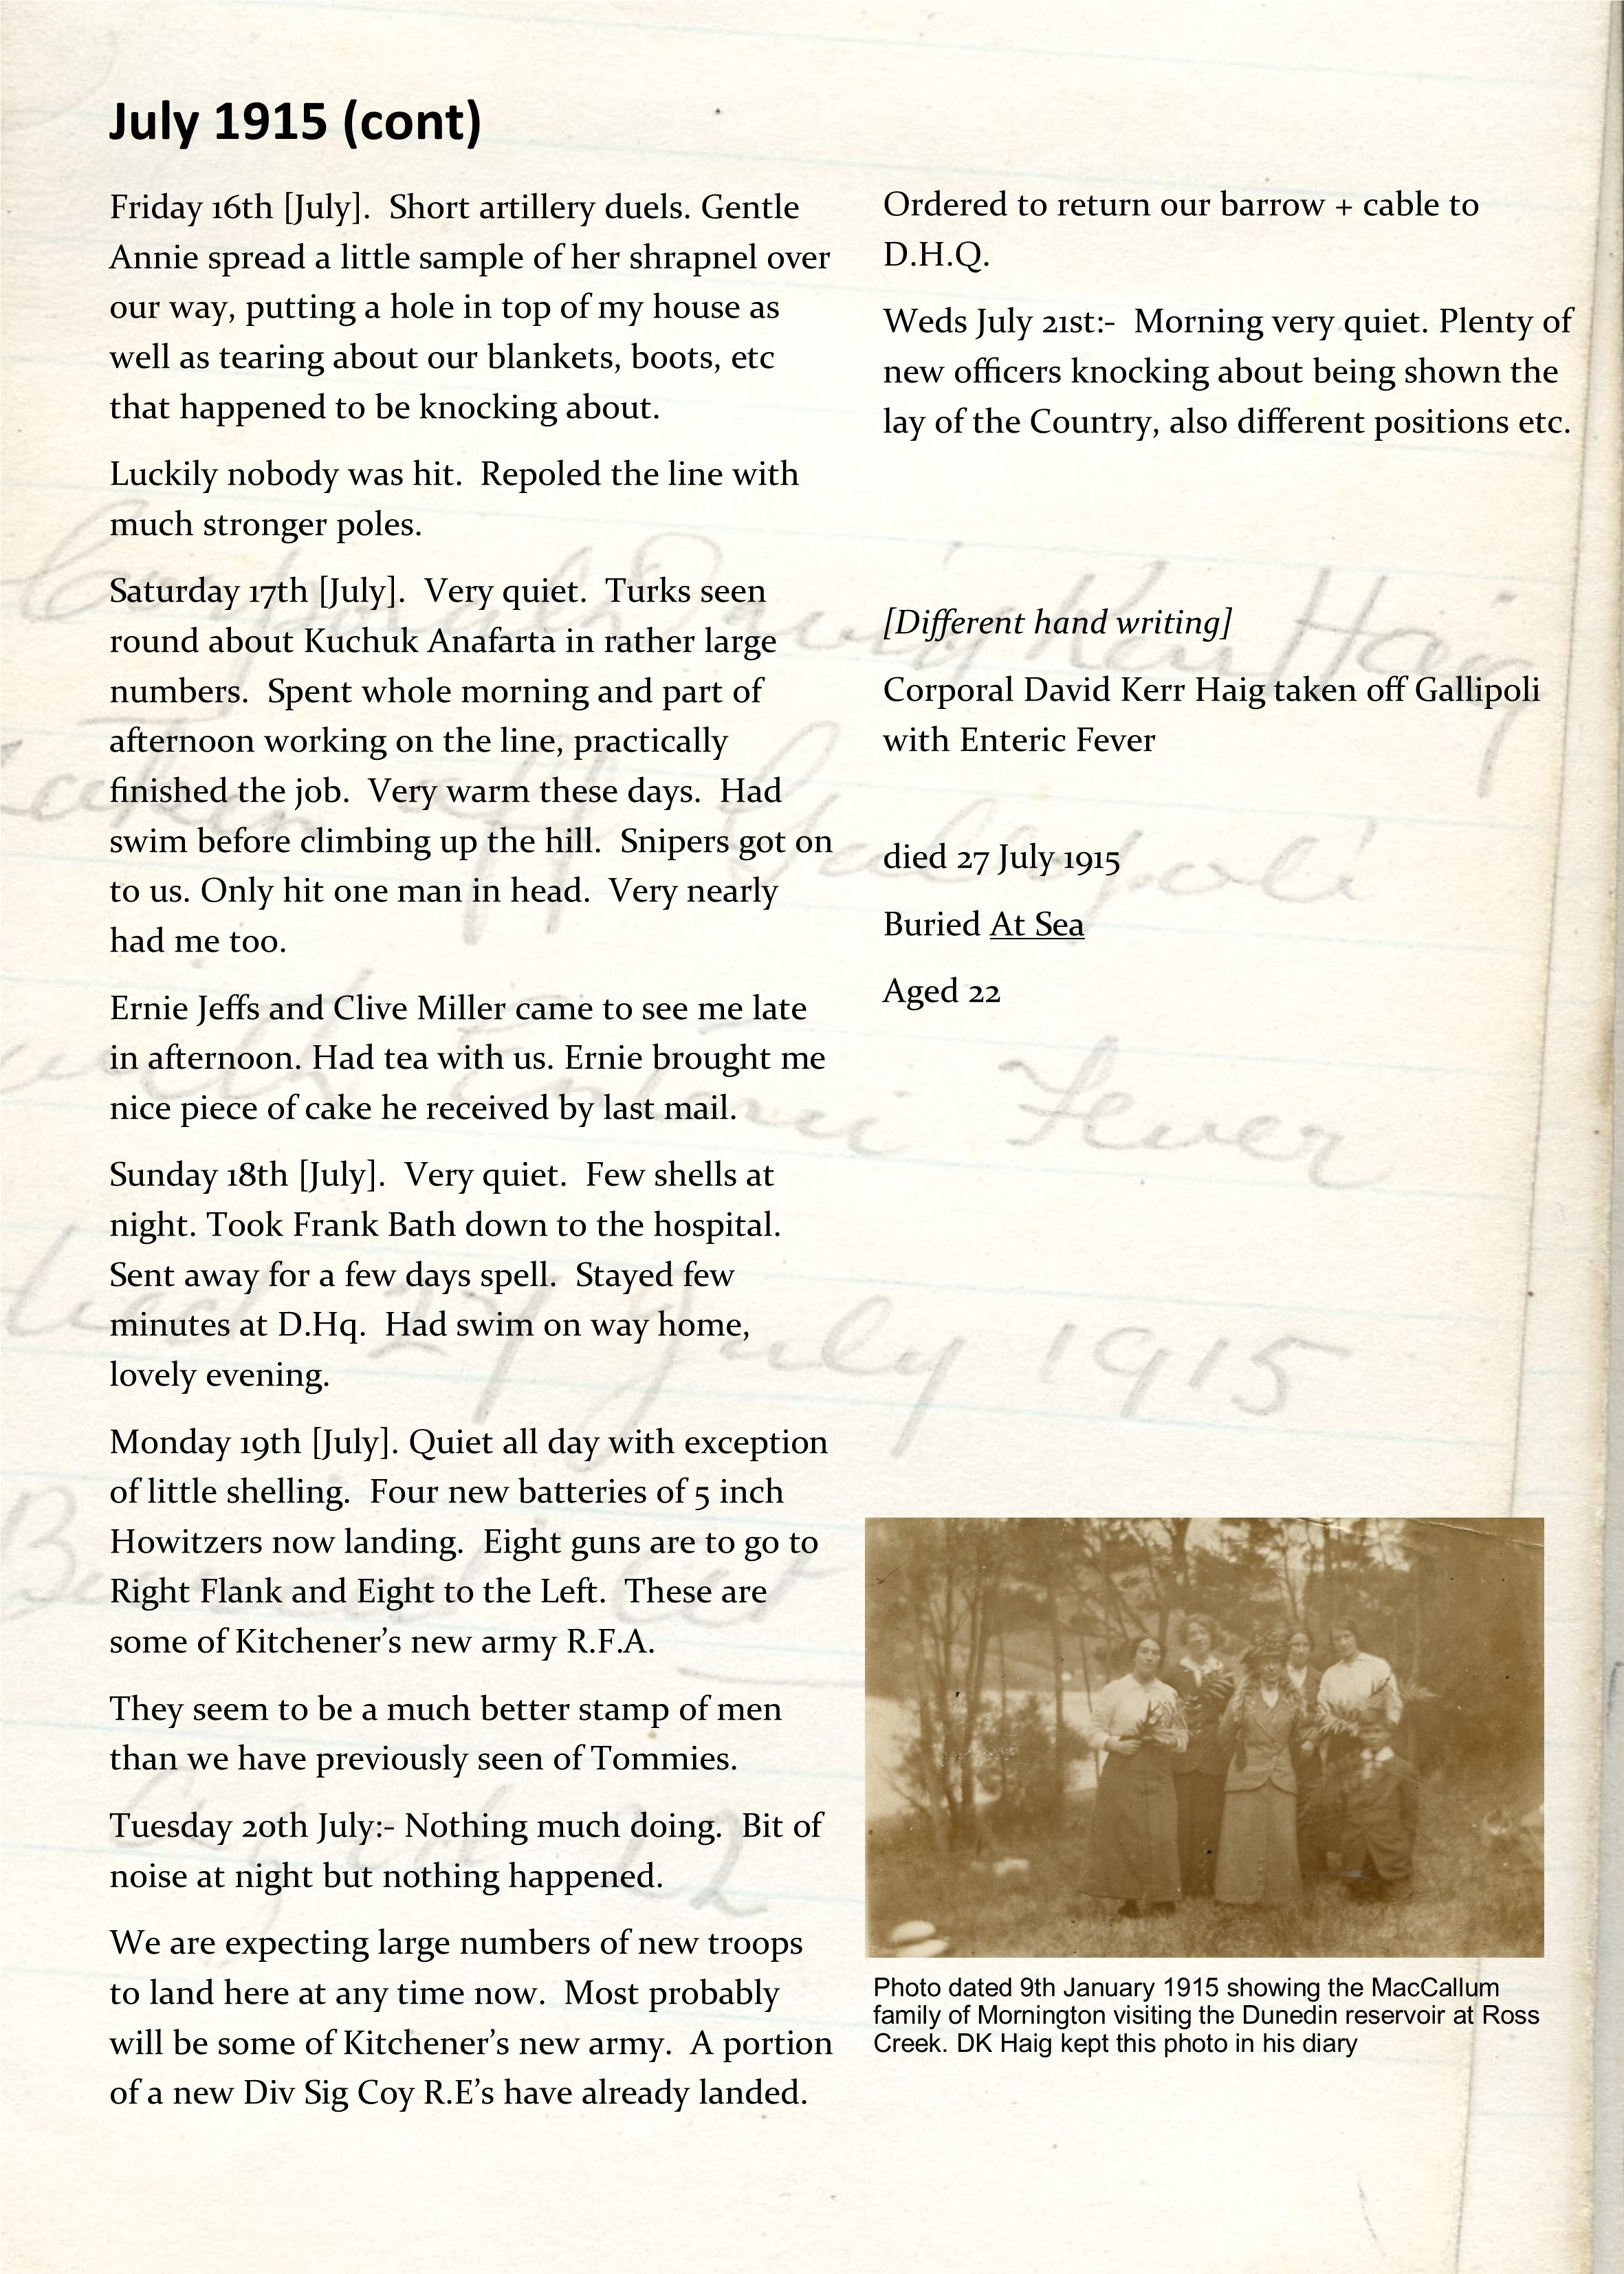 July 1915 (cont)
Friday 16th [July].  Short artillery duels. Gentle
Annie spread a little sample of her shrapnel over
our way, putting a hole in top of my house as
well as tearing about our blankets, boots, etc
that happened to be knocking about.
Luckily nobody was hit.  Repoled the line with
much stronger poles.
Saturday 17th [July].  Very quiet.  Turks seen
round about Kuchuk Anafarta in rather large
numbers.  Spent whole morning and part of
afternoon working on the line, practically
finished the job.  Very warm these days.  Had
swim before climbing up the hill.  Snipers got on
to us. Only hit one man in head.  Very nearly
had me too.
Ernie Jeffs and Clive Miller came to see me late
in afternoon. Had tea with us. Ernie brought me
nice piece of cake he received by last mail.
Sunday 18th [July].  Very quiet.  Few shells at
night. Took Frank Bath down to the hospital.
Sent away for a few days spell.  Stayed few
minutes at D.Hq.  Had swim on way home,
lovely evening.
Monday 19th [July]. Quiet all day with exception
of little shelling.  Four new batteries of 5 inch
Howitzers now landing.  Eight guns are to go to
Right Flank and Eight to the Left.  These are
some of Kitchener’s new army R.F.A.
They seem to be a much better stamp of men
than we have previously seen of Tommies.
Tuesday 20th July:- Nothing much doing.  Bit of
noise at night but nothing happened.
We are expecting large numbers of new troops
to land here at any time now.  Most probably
will be some of Kitchener’s new army.  A portion
of a new Div Sig Coy R.E’s have already landed.
Ordered to return our barrow + cable to
D.H.Q.
Weds July 21st:-  Morning very quiet. Plenty of
new officers knocking about being shown the
lay of the Country, also different positions etc.
[Different hand writing]
Corporal David Kerr Haig taken off Gallipoli
with Enteric Fever
died 27 July 1915
Buried At Sea
Aged 22
Photo dated 9th January 1915 showing the MacCallum
family of Mornington visiting the Dunedin reservoir at Ross
Creek. DK Haig kept this photo in his diary
Corporal David Kerr Haig
taken off Gallipoli
with Enteric Fever
died 27 July 1915
Buried At
Aged 22